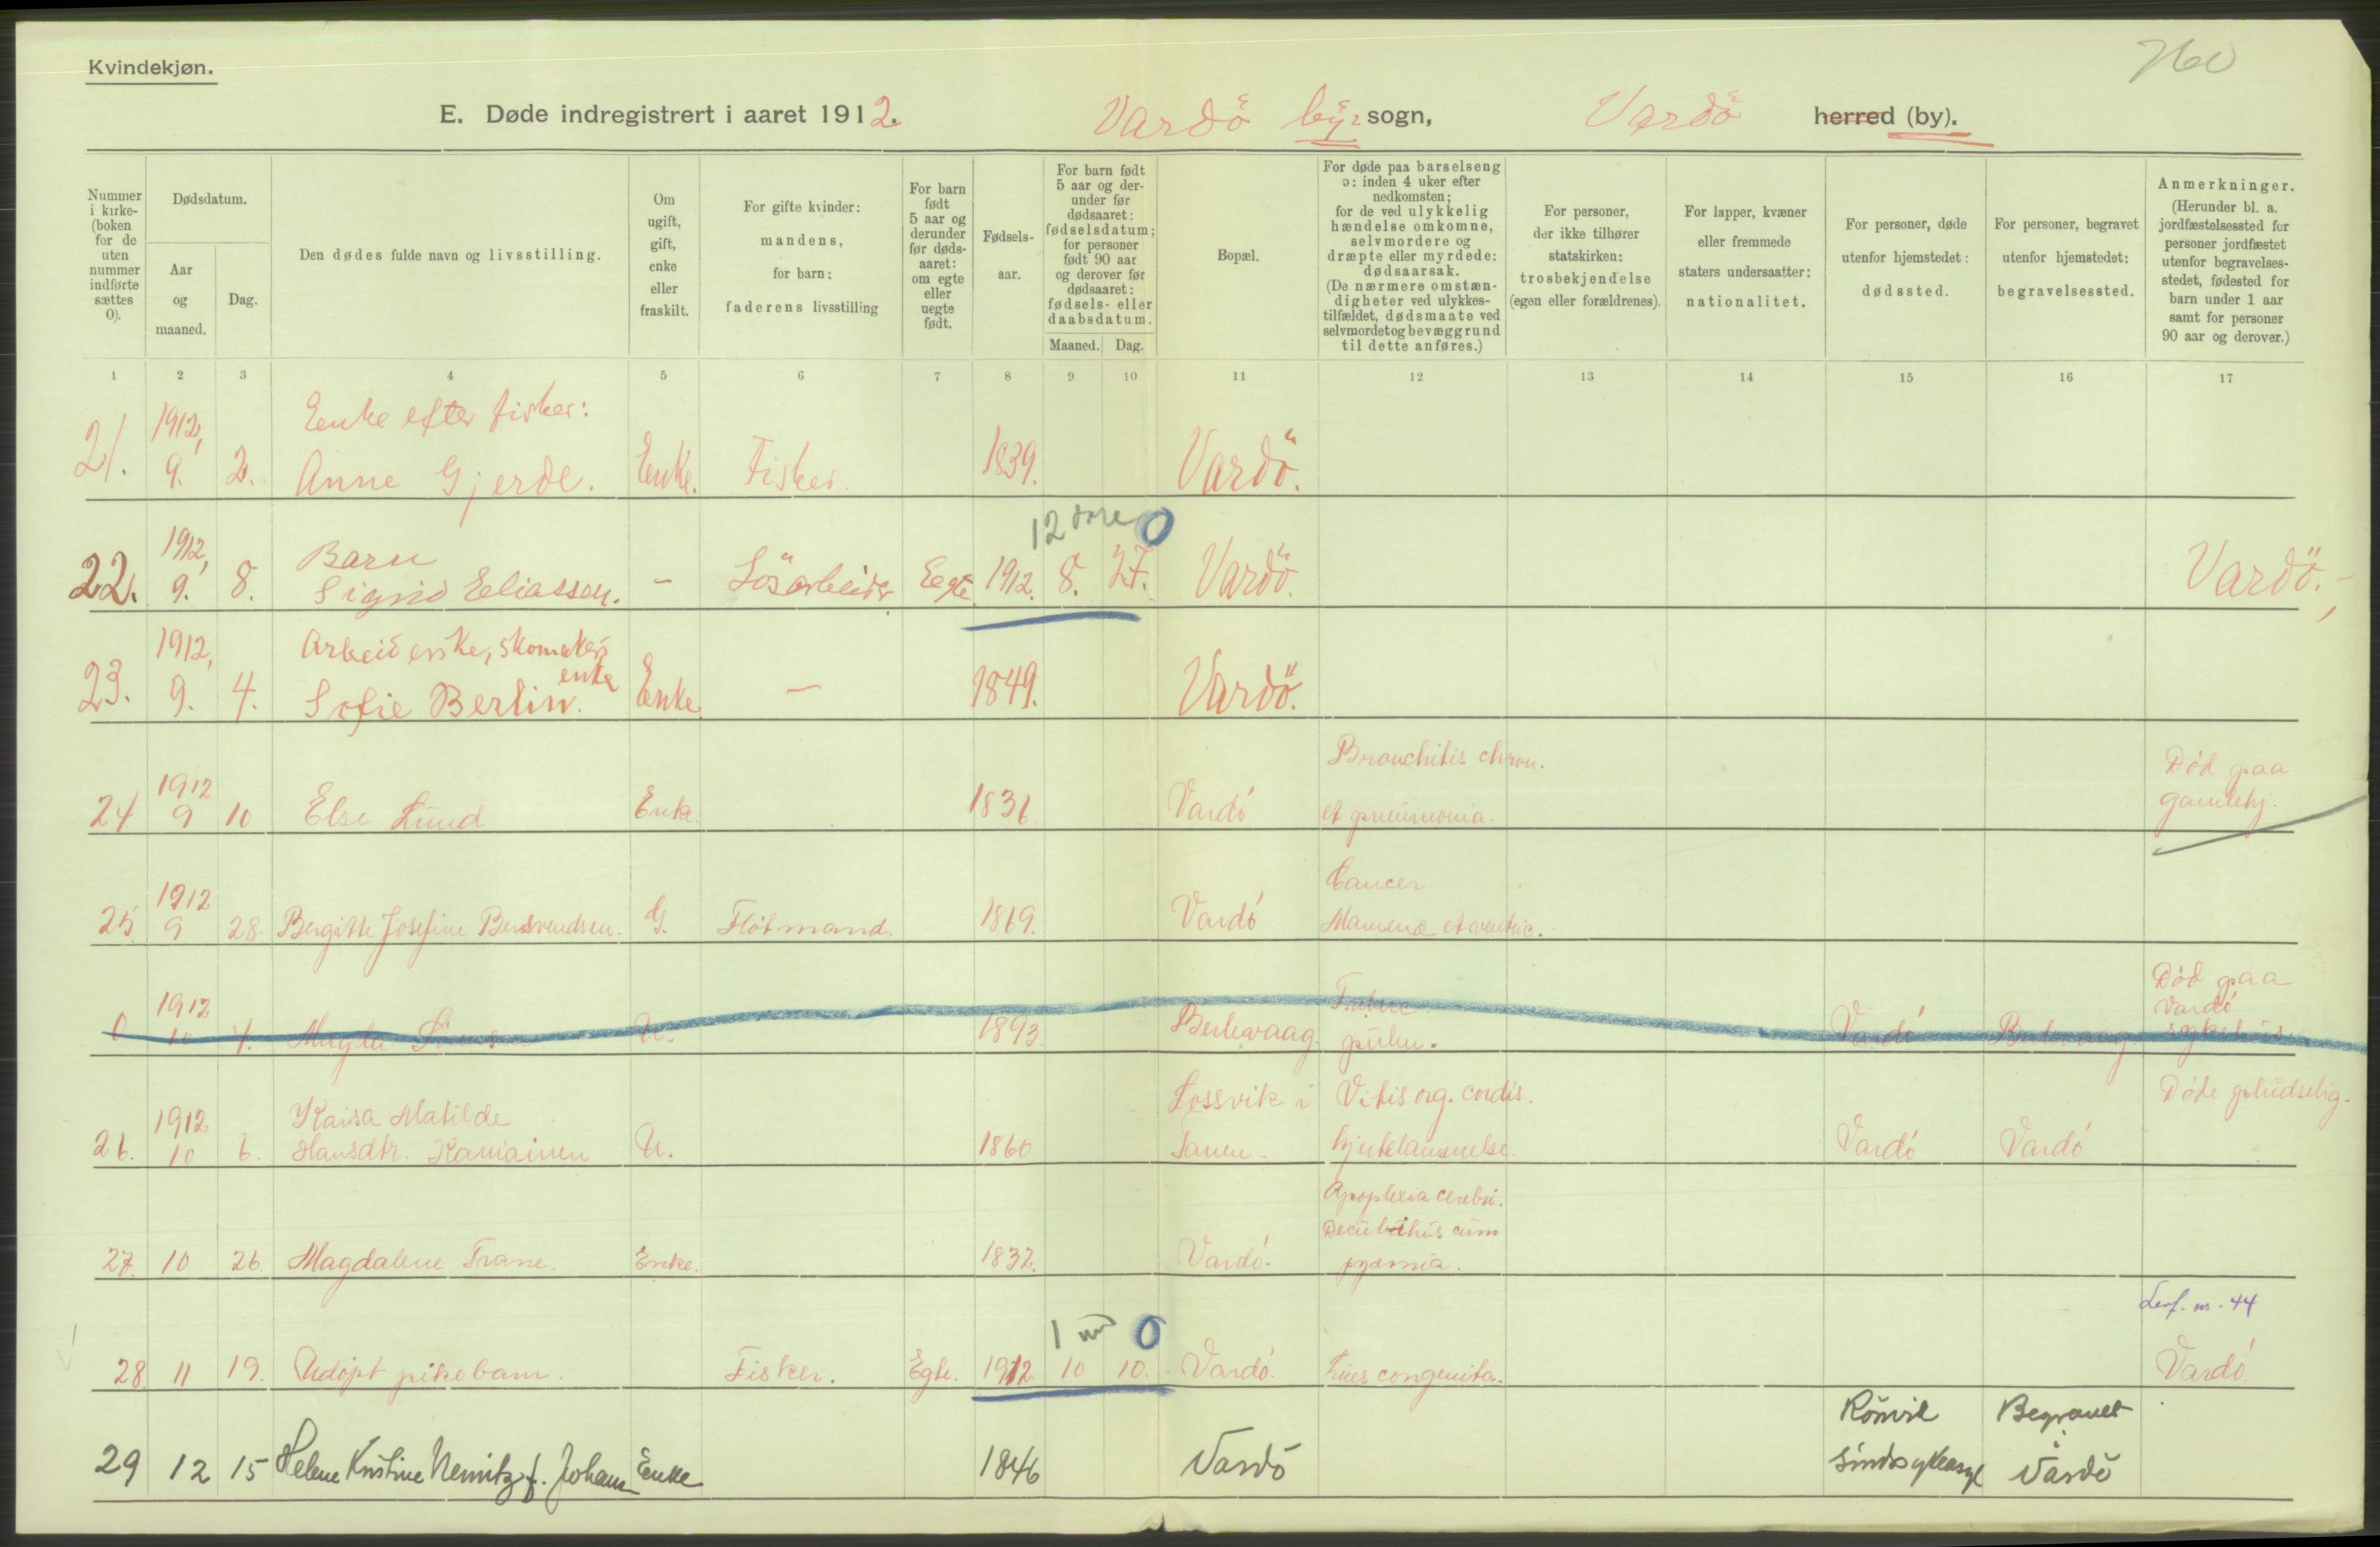 Kvindekjøn.
760
E. Døde indregistrert i aaret 1912. Vardö by: sogn, Vardö herred (by).
Nummer i kirke-(boken for de uten nummer indførte sættes 0).
Dødsdatum.
Aar og maaned.
Dag.
Den dødes fulde navn og livsstilling.
Om ugift, gift, enke eller fraskilt.
For gifte kvinder: mandens, for barn: faderens livsstilling
For barn født 5 aar og derunder før døds-aaret: om egte eller uegte født.
Fødsels-aar.
For barn født 5 aar og der-under før dødsaaret: fødselsdatum; for personer født 90 aar og derover før dødsaaret: fødsels- eller daabsdatum.
Maaned. Dag.
Bopæl.
For døde paa barselseng ɔ: inden 4 uker efter nedkomsten; for de ved ulykkelig hændelse omkomne, selvmordere og dræpte eller myrdede: dødsaarsak. (De nærmere omstæn-digheter ved ulykkes-tilfældet, dødsmaate ved selvmord et og bevæggrund til dette anføres.)
For personer, der ikke tilhører statskirken: trosbekjendelse (egen eller forældrenes).
For lapper, kvæner eller fremmede staters undersaatter: nationalitet.
For personer, døde utenfor hjemstedet: dødssted.
For personer, begravet utenfor hjemstedet: begravelsessted.
Anmerkninger. (Herunder bl. a. jordfæstelsessted for personer jordfæstet utenfor begravelses-stedet, fødested for barn under 1 aar samt for personer 90 aar og derover.)
1 2 3 4 5 6 7 8 9 10 11 12 13 14 15 16 17
1912, Enke efter fisker:
21. 9. 2. Anne Gjerde. Enke. Fisker. 1839. Vardö.
12 0
1912, Barn
22. 9. 8. Sigrid Eliassen. - Lösarbeider Egte 1912. 8. 27. Vardö. Vardö.-
1912, Arbeiderske, skomakers enke
23. 9. 4. Sofie Berlin. Enke - 1849. Vardö.
1912 Bronchitis chron. Död paa
24. 9 10 Else Lund Enke. 1836. Vardö et pneumonia. gamlehj.
1912 Cancer
25 9 28. Bergitte Josefine Berdsvendsen. G. Flötmand 1869. Vardö Mamma et ventric.
1912 Död paa Vardö
0 10 4. U. 1893. Berlevaag pulm. Vardö Berlevaag sykehus.
1912 Kaisa Matilde Lossvik i Vitis org. cordis. Döde pludselig.
26. 10 6. Hansdtr. U. 1860 Tanen- hjertelammelse. Vardö Vardö
Apoplexia cerebri.
Decubitus cum
27. 10 26. Magdalene Trane. Enke. 1832. Vardö. pyæmia.
1 m 0 Levf. nr. 44
28. 11 19. Udöpt pikebarn. Fisker. Egte. 1912 10 10. Vardö. Lues congenita. Vardö.
Rönvik Begravet
29 12 15 Helene Kristine Nemitz f. Johann Enke 1846 Vardö Sindssykeasyl Vardö